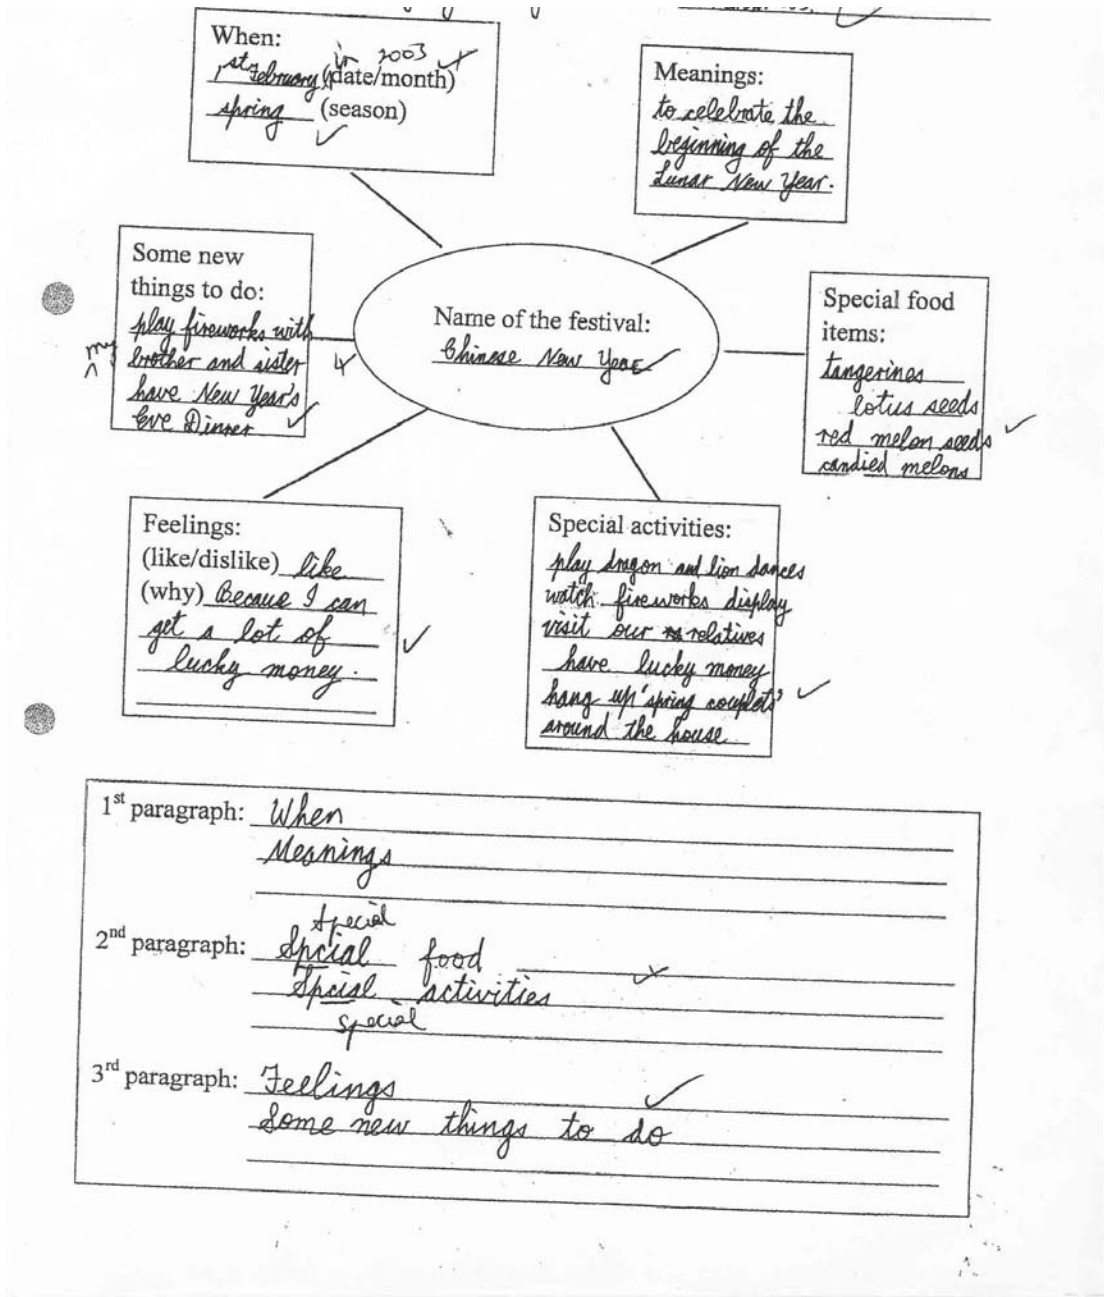 When:
in 2003
1st February (date/month)
spring (season)
Meanings:
to celebrate the
beginning of the
Lunar New Year.
Some new
things to do:
play fireworks with
my
brother and sister
have New Year's
Eve Dinner
Name of the festival:
Chinese New Year
Special food
items:
tangerines
lotus seeds
red melon seeds
candied melons
Feelings:
(like/dislike) like
(why) Becaue I can
get a lot of
lucky money.
Special activities:
play dragon and lion dances
watch fireworks display
visit our relatives
have lucky money
hang up 'spring couplets'
around the house
1st paragraph: When
Meanings
special
2nd paragraph: Spcial food
Spcial activities
special
3rd paragraph: Feelings
Some new things to do